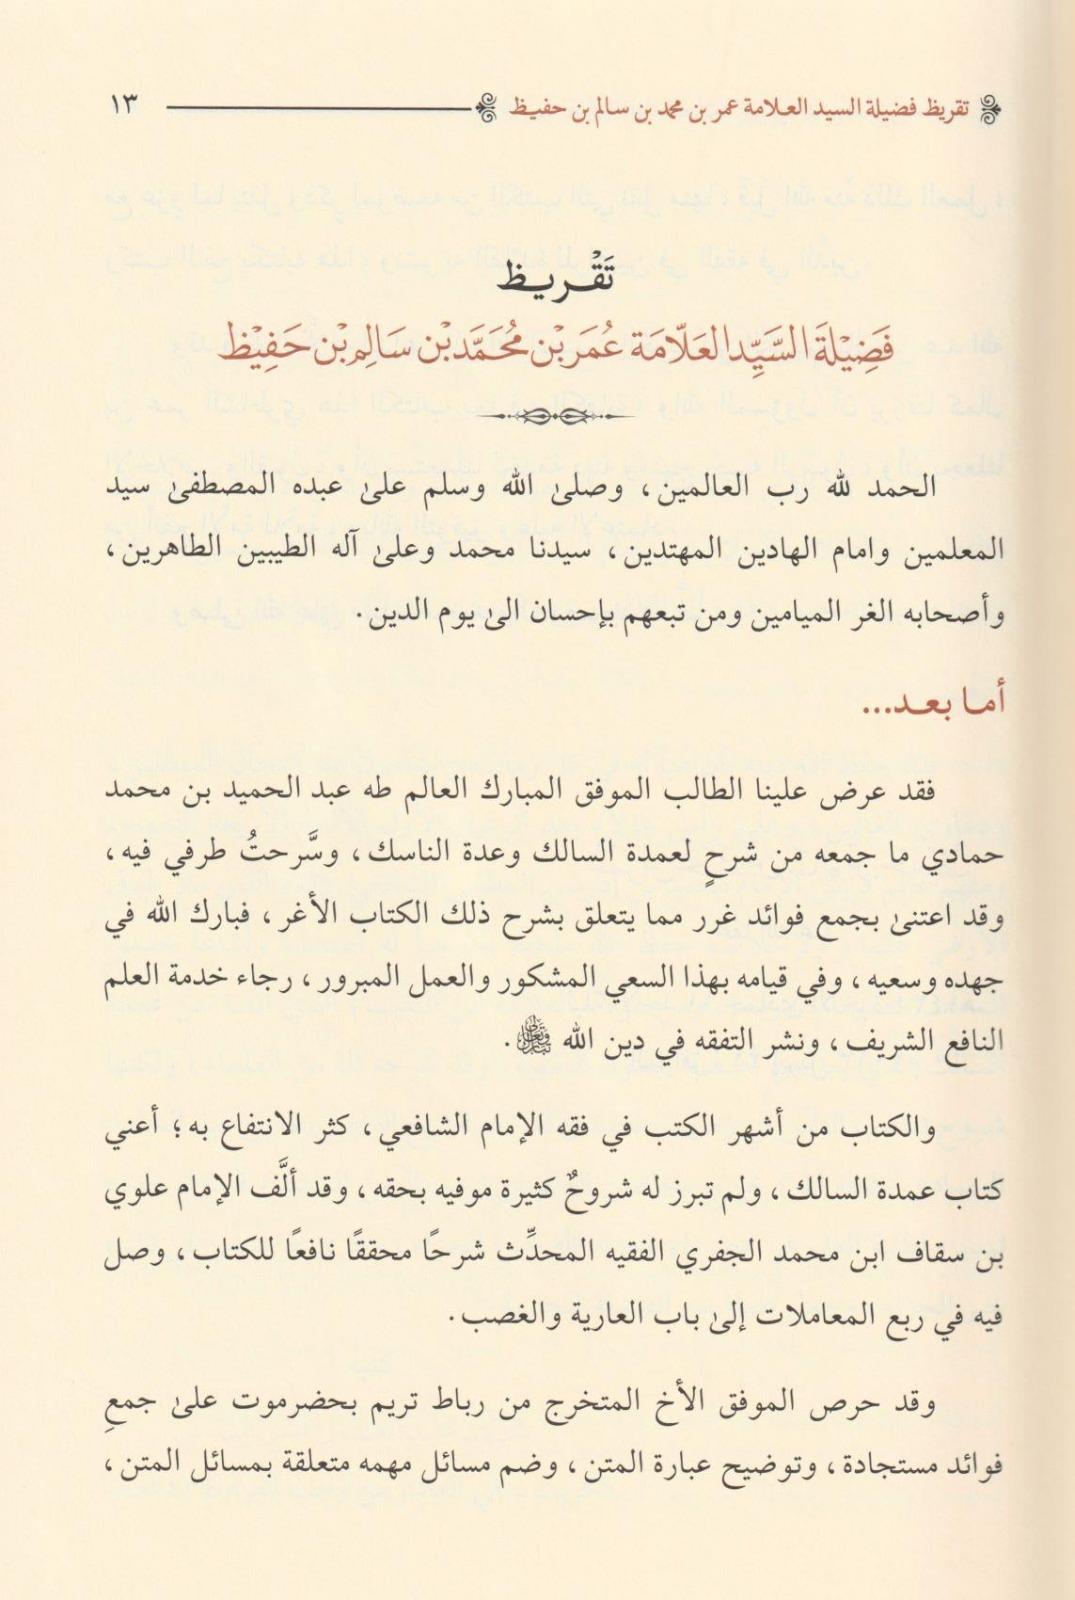 تقريظ فضيلة السيد العلامة عمر بن محمد بن سالم بن حفيظ ١٣
تَقْريظ
فَضِيْلَةَ السَّيِّد العَلّامَة عُمَر بْن مُحَمَّد بْن سَالِم بْن حَفِيْظ
الحمد لله رب العالمين، وصلىٰ الله وسلم علىٰ عبده المصطفىٰ سيد
المعلمين وامام الهادين المهتدين، سيدنا محمد وعلىٰ آله الطيبين الطاهرين،
وأصحابه الغر الميامين ومن تبعهم بإحسان الىٰ يوم الدين.
أما بعد...
فقد عرض علينا الطالب الموفق المبارك العالم طه عبد الحميد بن محمد
حمادي ما جمعه من شرحٍ لعمدة السالك وعدة الناسك، وسَّرحتُ طرفي فيه،
وقد اعتنىٰ بجمع فوائد غرر مما يتعلق بشرح ذلك الكتاب الأغر، فبارك الله في
جهده وسعيه، وفي قيامه بهذا السعي المشكور والعمل المبرور، رجاء خدمة العلم
النافع الشريف، ونشر التفقه في دين الله تبارك وتعالى.
والكتاب من أشهر الكتب في فقه الإمام الشافعي، كثر الانتفاع به؛ أعني
كتاب عمدة السالك، ولم تبرز له شروحٌ كثيرة موفيه بحقه، وقد ألَّف الإمام علوي
بن سقاف ابن محمد الجفري الفقيه المحدِّث شرحًا محققًا نافعًا للكتاب، وصل
فيه في ربع المعاملات إلىٰ باب العارية والغصب.
وقد حرص الموفق الأخ المتخرج من رباط تريم بحضرموت علىٰ جمعِ
فوائد مستجادة، وتوضيح عبارة المتن، وضم مسائل مهمه متعلقة بمسائل المتن،